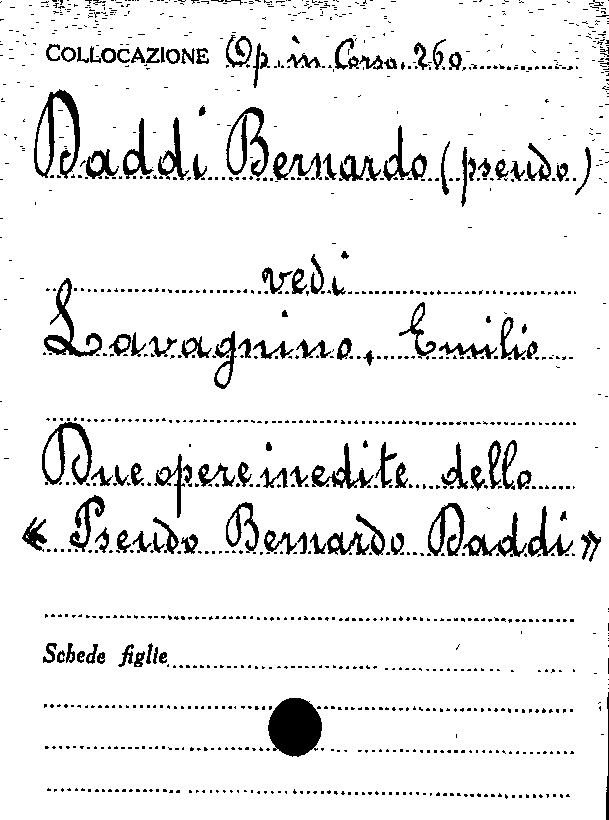 COLLOCAZIONE Op. in Corso. 260
Daddi Bernardo (pseudo)
vedi
Lavagnino, Emilio
Due opere inedite dello
« Pseudo Bernardo Daddi »
Schede figlie